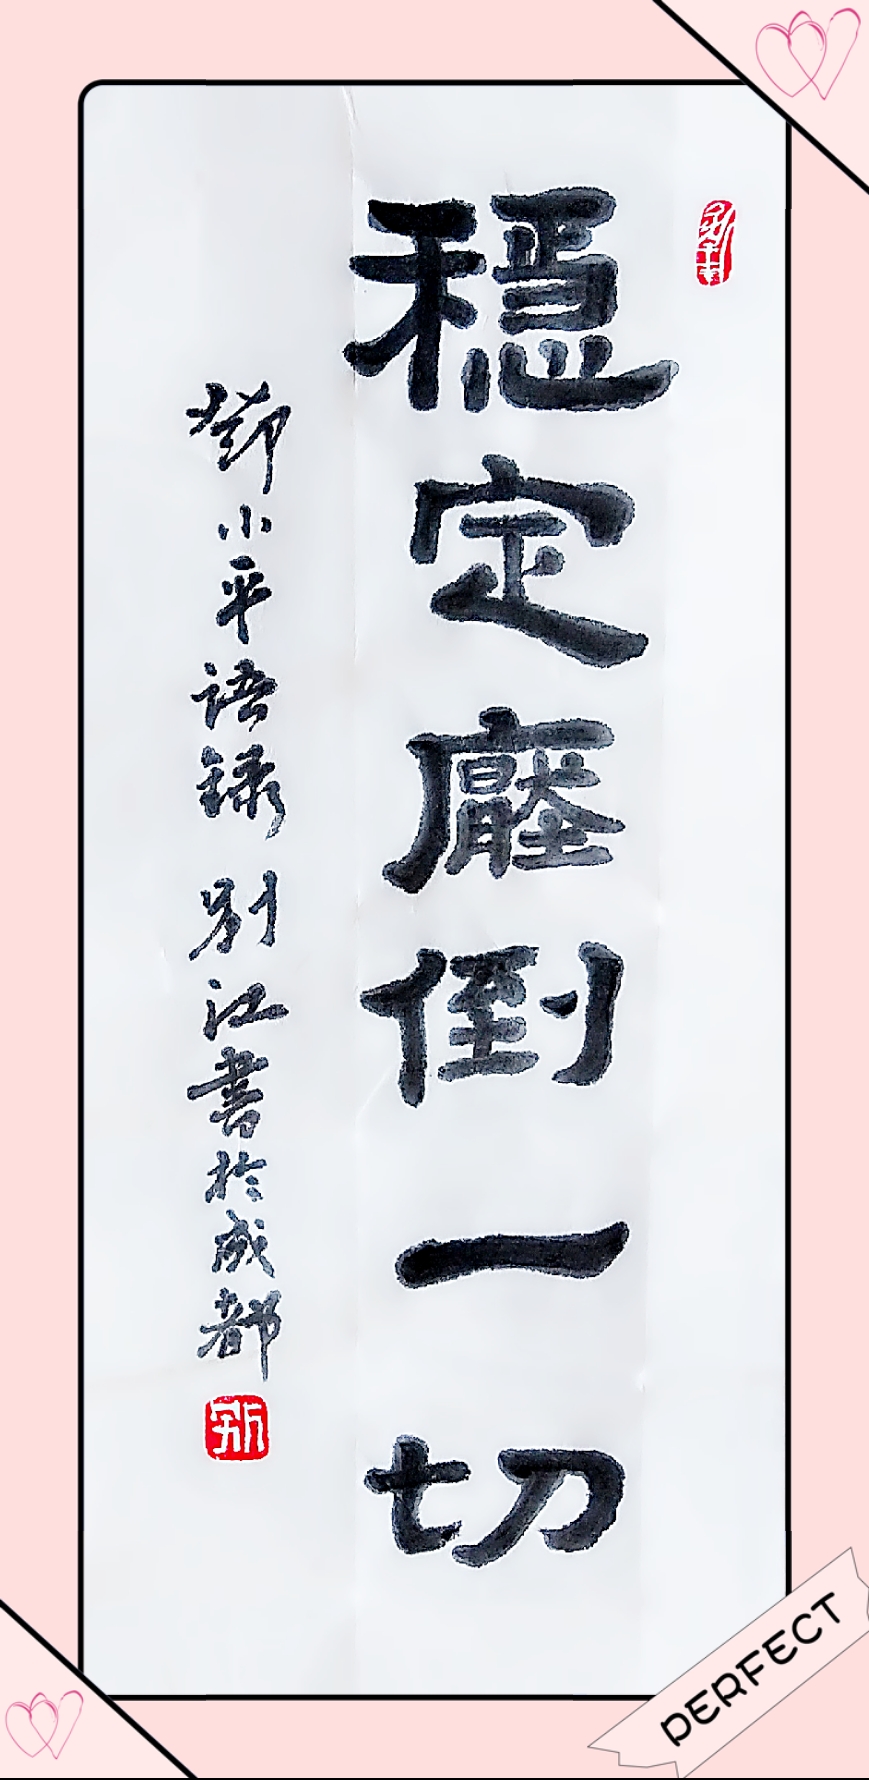 穩定壓倒一切
鄧小平语録 别江書於成都
PERFECT